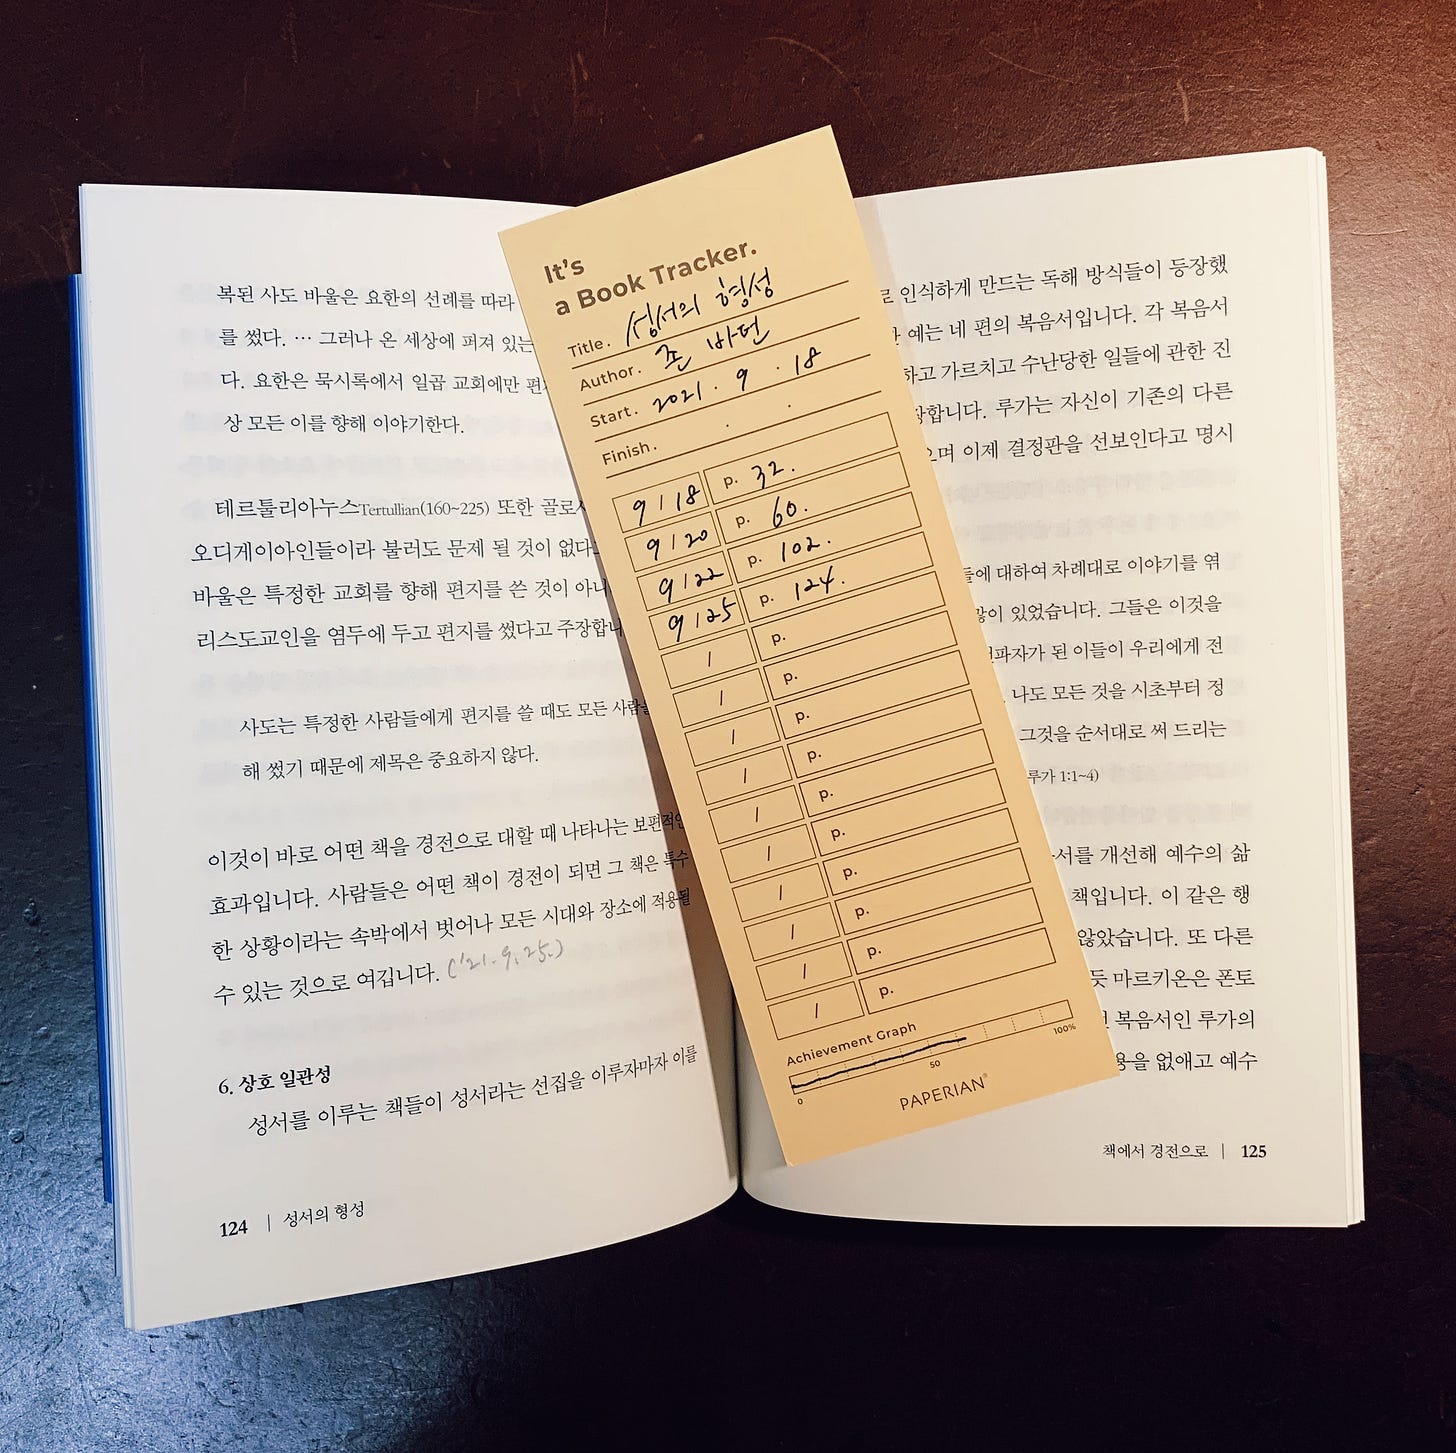 복된 사도 바울은 요한의 선례를 따라
를 썼다. … 그러나 온 세상에 퍼져 있는
다. 요한은 묵시록에서 일곱 교회에만 편
상 모든 이를 향해 이야기한다.
테르툴리아누스Tertullian(160~225) 또한 골로
오디게이아인들이라 불러도 문제 될 것이 없다
바울은 특정한 교회를 향해 편지를 쓴 것이 아니
리스도교인을 염두에 두고 편지를 썼다고 주장합니
사도는 특정한 사람들에게 편지를 쓸 때도 모든 사람을
해 썼기 때문에 제목은 중요하지 않다.
이것이 바로 어떤 책을 경전으로 대할 때 나타나는 보편적인
효과입니다. 사람들은 어떤 책이 경전이 되면 그 책은 특수
한 상황이라는 속박에서 벗어나 모든 시대와 장소에 적용될
수 있는 것으로 여깁니다. ('21. 9. 25.)
6. 상호 일관성
성서를 이루는 책들이 성서라는 선집을 이루자마자 이를
124 | 성서의 형성
It's
a Book Tracker.
Title. 성서의 형성
Author. 존 바턴
Start. 2021 . 9 . 18
Finish. . .
9 / 18 p. 32.
9 / 20 p. 60.
9 / 22 p. 102.
9 / 25 p. 124.
/ p.
/ p.
/ p.
/ p.
/ p.
/ p.
/ p.
/ p.
/ p.
/ p.
Achievement Graph
0 50 100%
PAPERIAN
로 인식하게 만드는 독해 방식들이 등장했
예는 네 편의 복음서입니다. 각 복음서
하고 가르치고 수난당한 일들에 관한 진
장합니다. 루가는 자신이 기존의 다른
으며 이제 결정판을 선보인다고 명시
들에 대하여 차례대로 이야기를 엮
많이 있었습니다. 그들은 이것을
전파자가 된 이들이 우리에게 전
나도 모든 것을 시초부터 정
그것을 순서대로 써 드리는
루가 1:1~4)
서를 개선해 예수의 삶
책입니다. 이 같은 행
않았습니다. 또 다른
듯 마르키온은 폰토
복음서인 루가의
용을 없애고 예수
책에서 경전으로 | 125